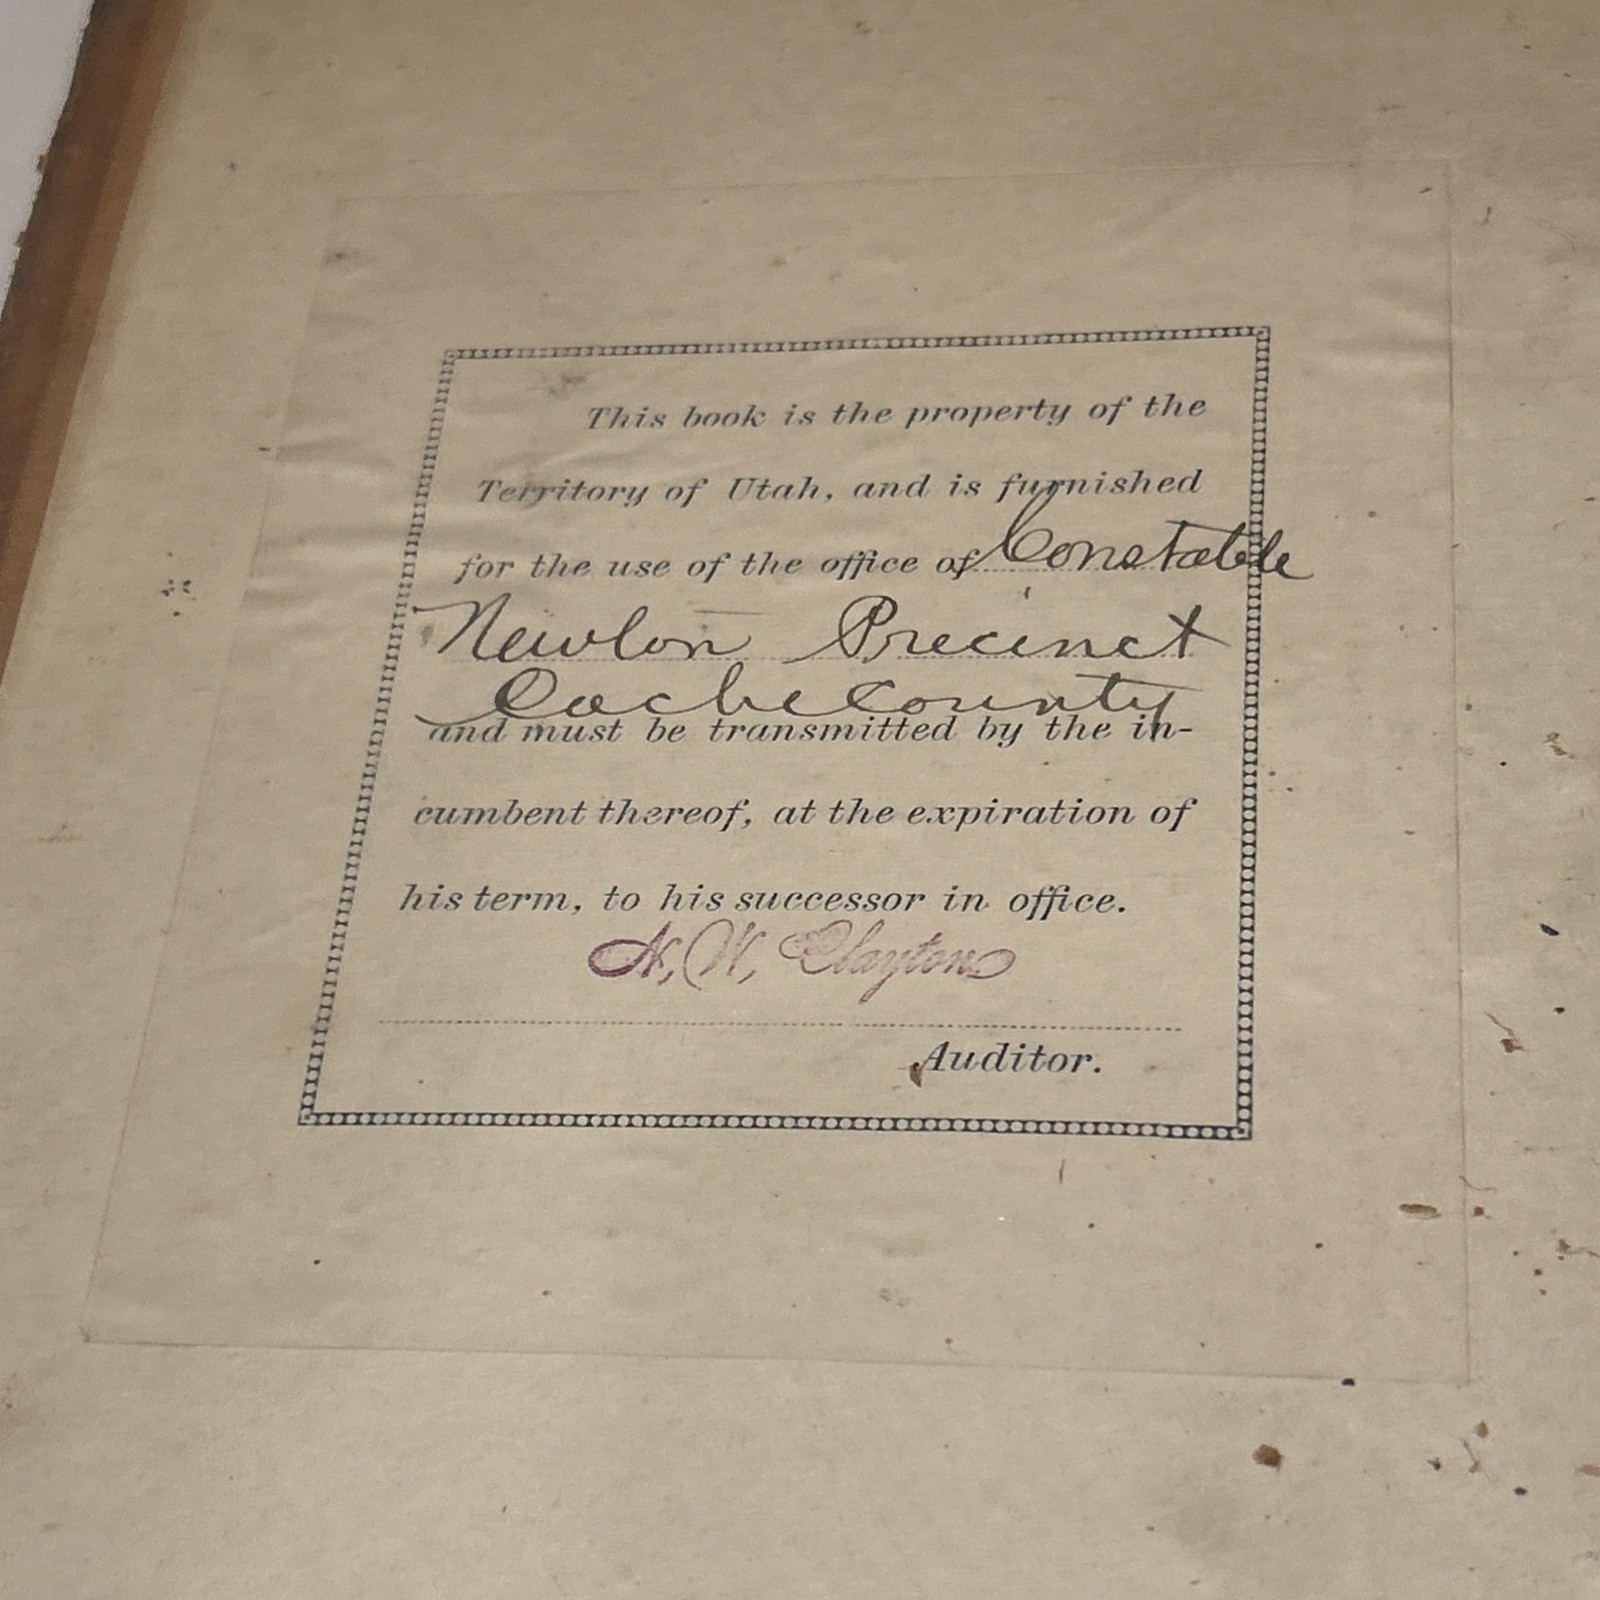 This book is the property of the
Territory of Utah, and is furnished
for the use of the office of Constable
Newton Precinct
Cache County
and must be transmitted by the in-
cumbent thereof, at the expiration of
his term, to his successor in office.
N. W. Clayton
Auditor.